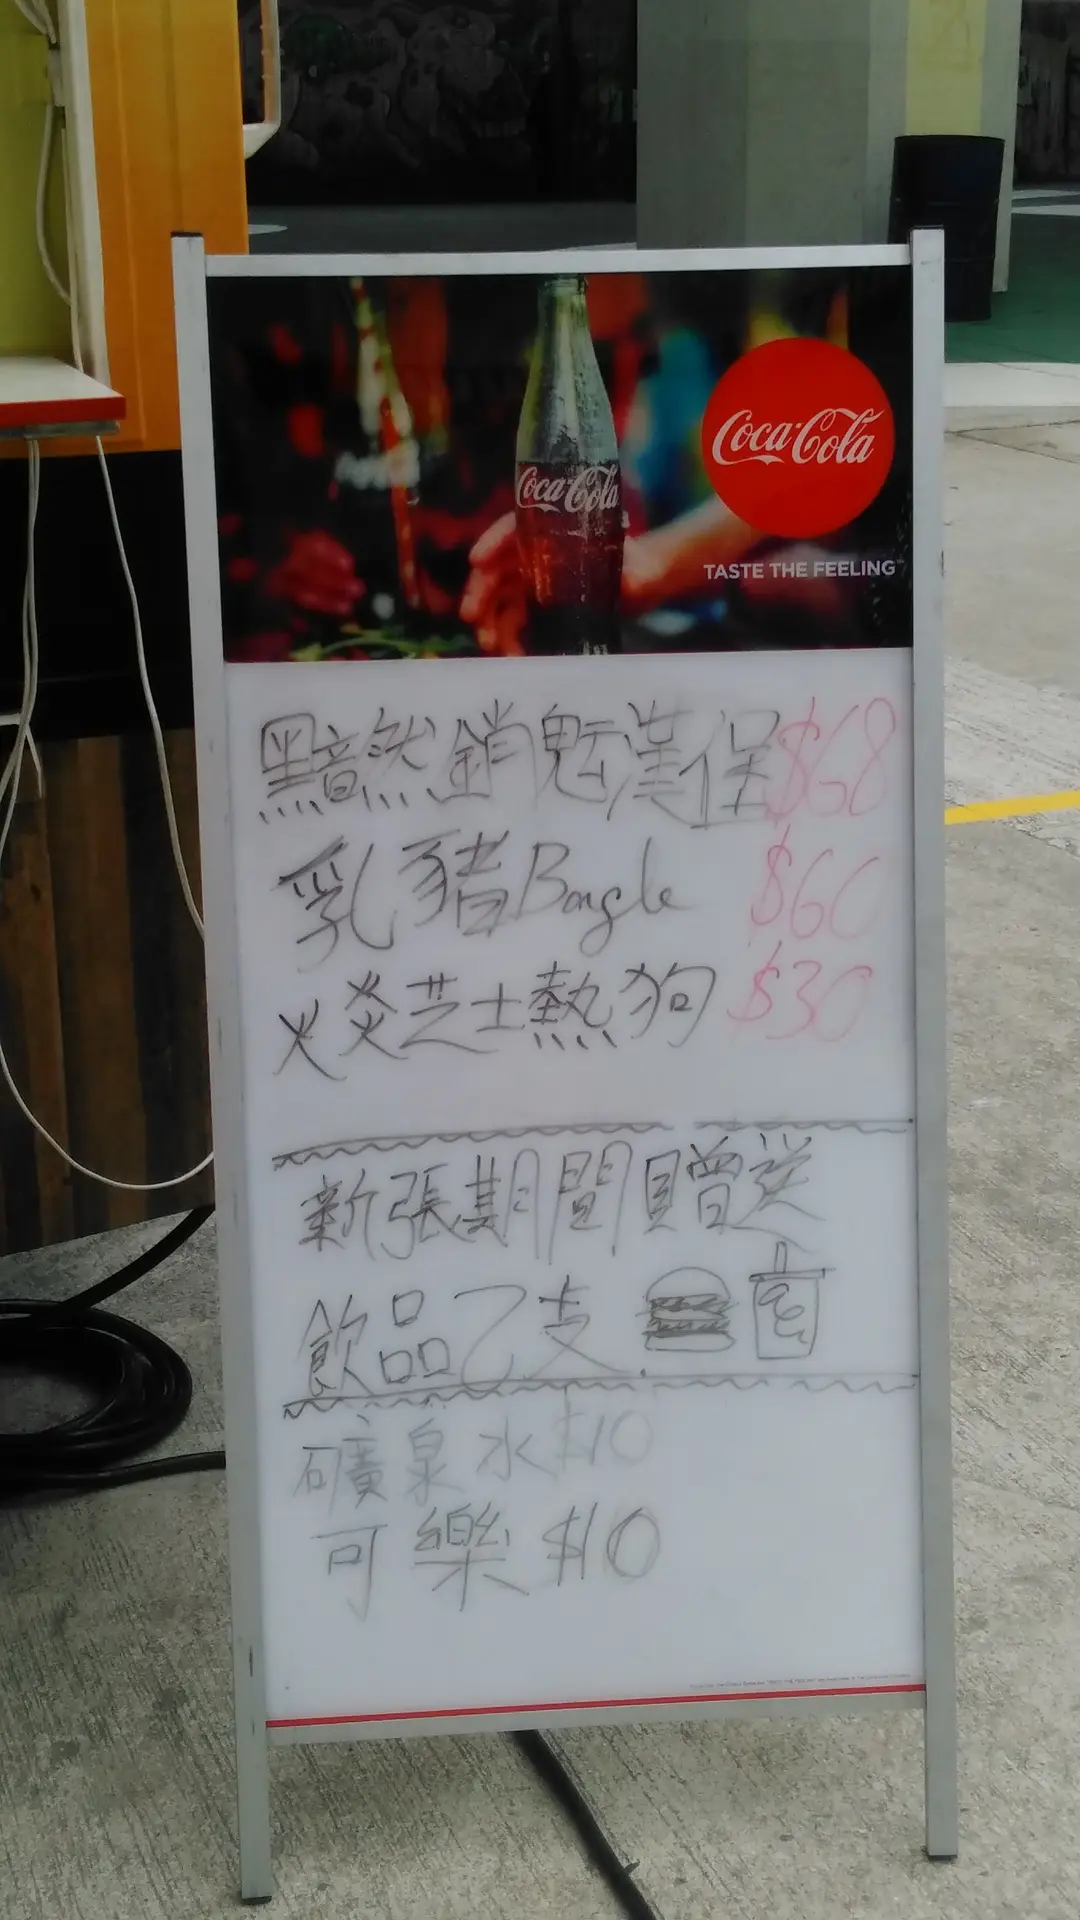 Coca-Cola
Coca-Cola
TASTE THE FEELING
黯然銷魂漢保$68
乳豬Bongle $60
火炎芝士熱狗 $30
新張期間買贈送
飲品乙支
礦泉水$10
可樂$10